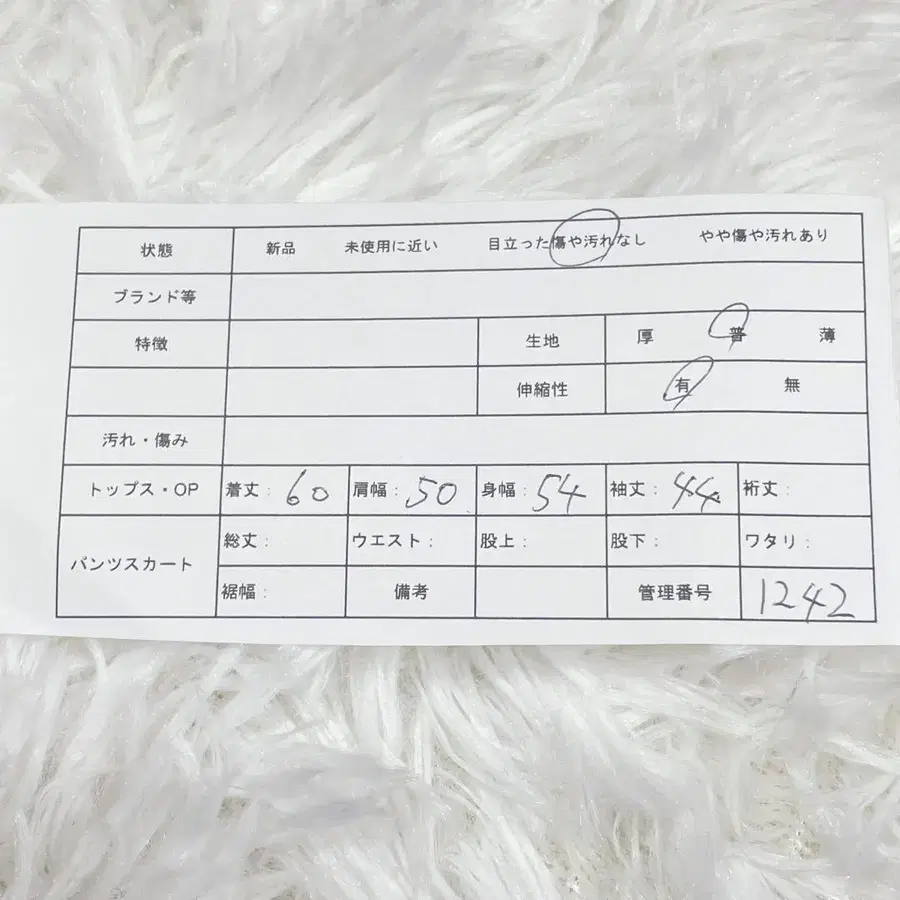 状態 新品 未使用に近い 目立った傷や汚れなし やや傷や汚れあり
ブランド等
特徴 生地 厚 普 薄
伸縮性 有 無
汚れ・傷み
トップス・OP 着丈: 60 肩幅: 50 身幅: 54 袖丈: 44 裄丈:
パンツスカート 総丈: ウエスト: 股上: 股下: ワタリ:
裾幅: 備考 管理番号 1242